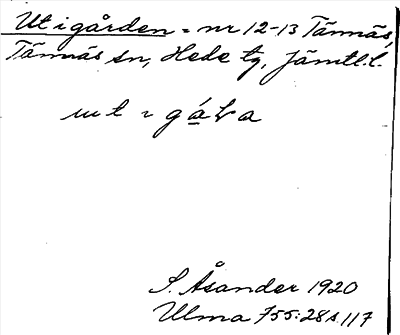 Ut i gården = nr 12-13 Tännäs,
Tännäs sn, Hede tg, Jämtl.l.
S. Åsander 1920
Ulma 755:28 s.117